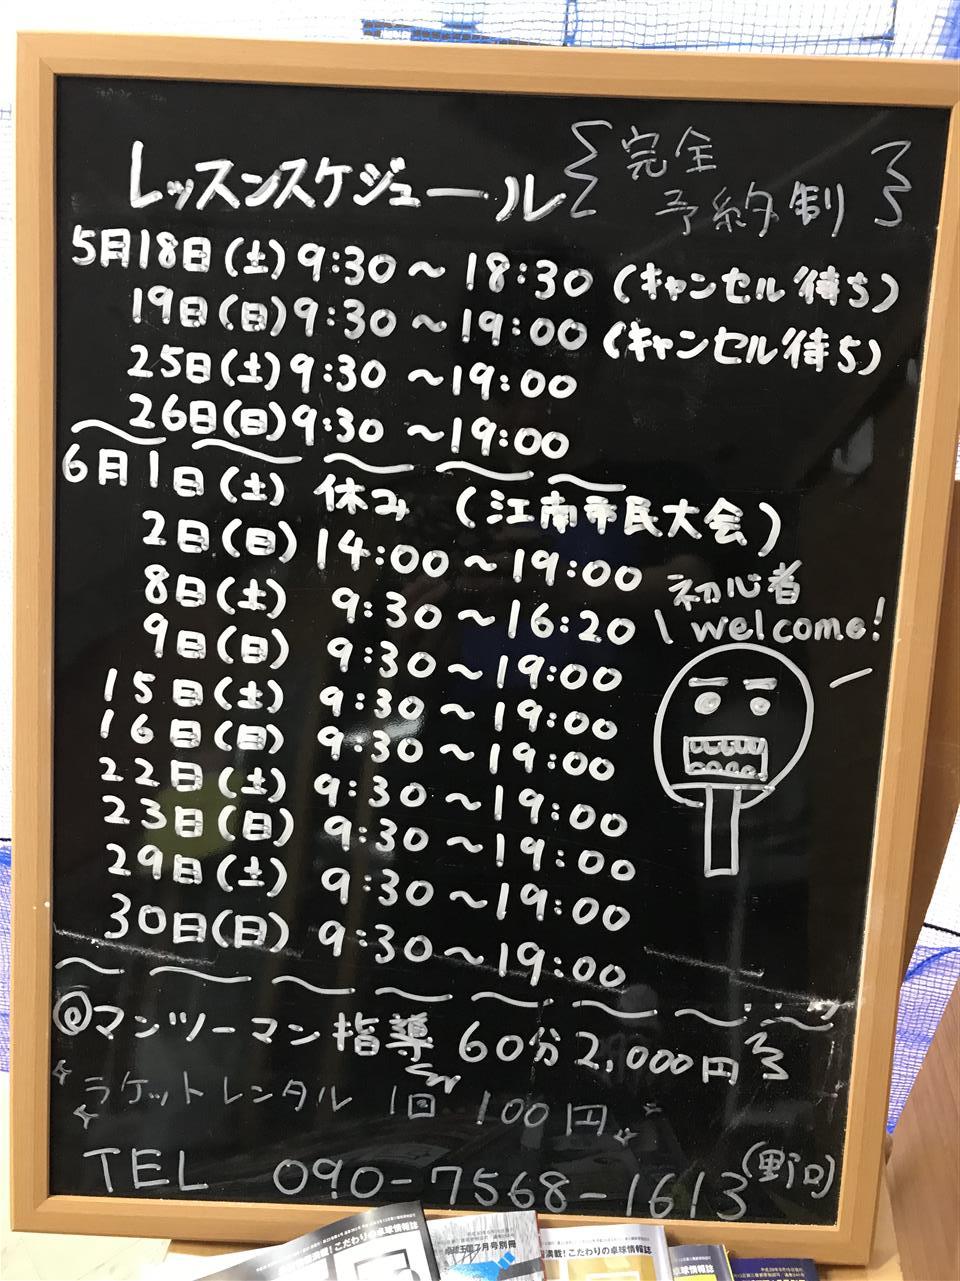 レッスンスケジュール
{完全
予約制}
5月18日(土)9:30〜18:30(キャンセル待ち)
19日(日)9:30〜19:00(キャンセル待ち)
25日(土)9:30〜19:00
26日(日)9:30〜19:00
6月1日(土) 休み (江南市民大会)
2日(日)14:00〜19:00
8日(土) 9:30〜16:20
9日(日) 9:30〜19:00
15日(土) 9:30〜19:00
16日(日) 9:30〜19:00
22日(土) 9:30〜19:00
23日(日) 9:30〜19:00
29日(土) 9:30〜19:00
30日(日) 9:30〜19:00
初心者
welcome!
@マンツーマン指導 60分2,000円
ラケットレンタル 1回 100円
TEL 090-7568-1613(野口)
満載!こだわりの卓球情報誌
卓球王国7月号別冊
満載!こだわりの卓球情報誌
卓球情報誌